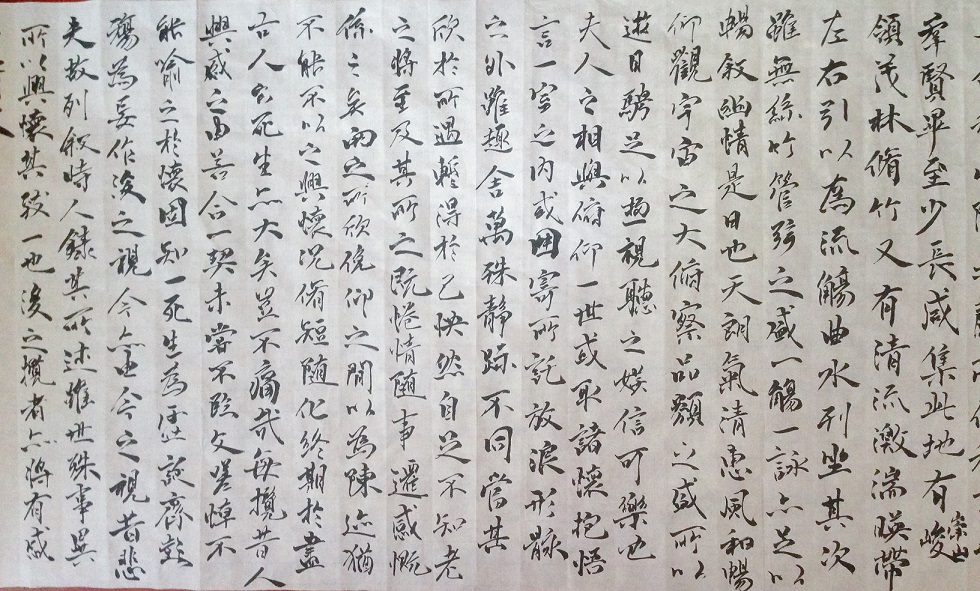 羣賢畢至少長咸集此地有崇山峻
領茂林脩竹又有清流激湍暎帶
左右引以為流觴曲水列坐其次
雖無絲竹管弦之盛一觴一詠亦足以
暢敘幽情是日也天朗氣清惠風和暢
仰觀宇宙之大俯察品類之盛所以
遊目騁足以極視聽之娛信可樂也
夫人之相與俯仰一世或取諸懷抱悟
言一室之內或因寄所託放浪形骸
之外雖趣舍萬殊靜躁不同當其
欣於所遇蹔得於己快然自足不知老
之將至及其所之既惓情隨事遷感慨
係之矣向之所欣俛仰之間以為陳迹猶
不能不以之興懷況脩短隨化終期於盡
古人云死生亦大矣豈不痛哉每攬昔人
興感之由若合一契未嘗不臨文嗟悼不
能喻之於懷固知一死生為虛誕齊彭
殤為妄作後之視今亦由今之視昔悲
夫故列敘時人錄其所述雖世殊事異
所以興懷其致一也後之攬者亦將有感